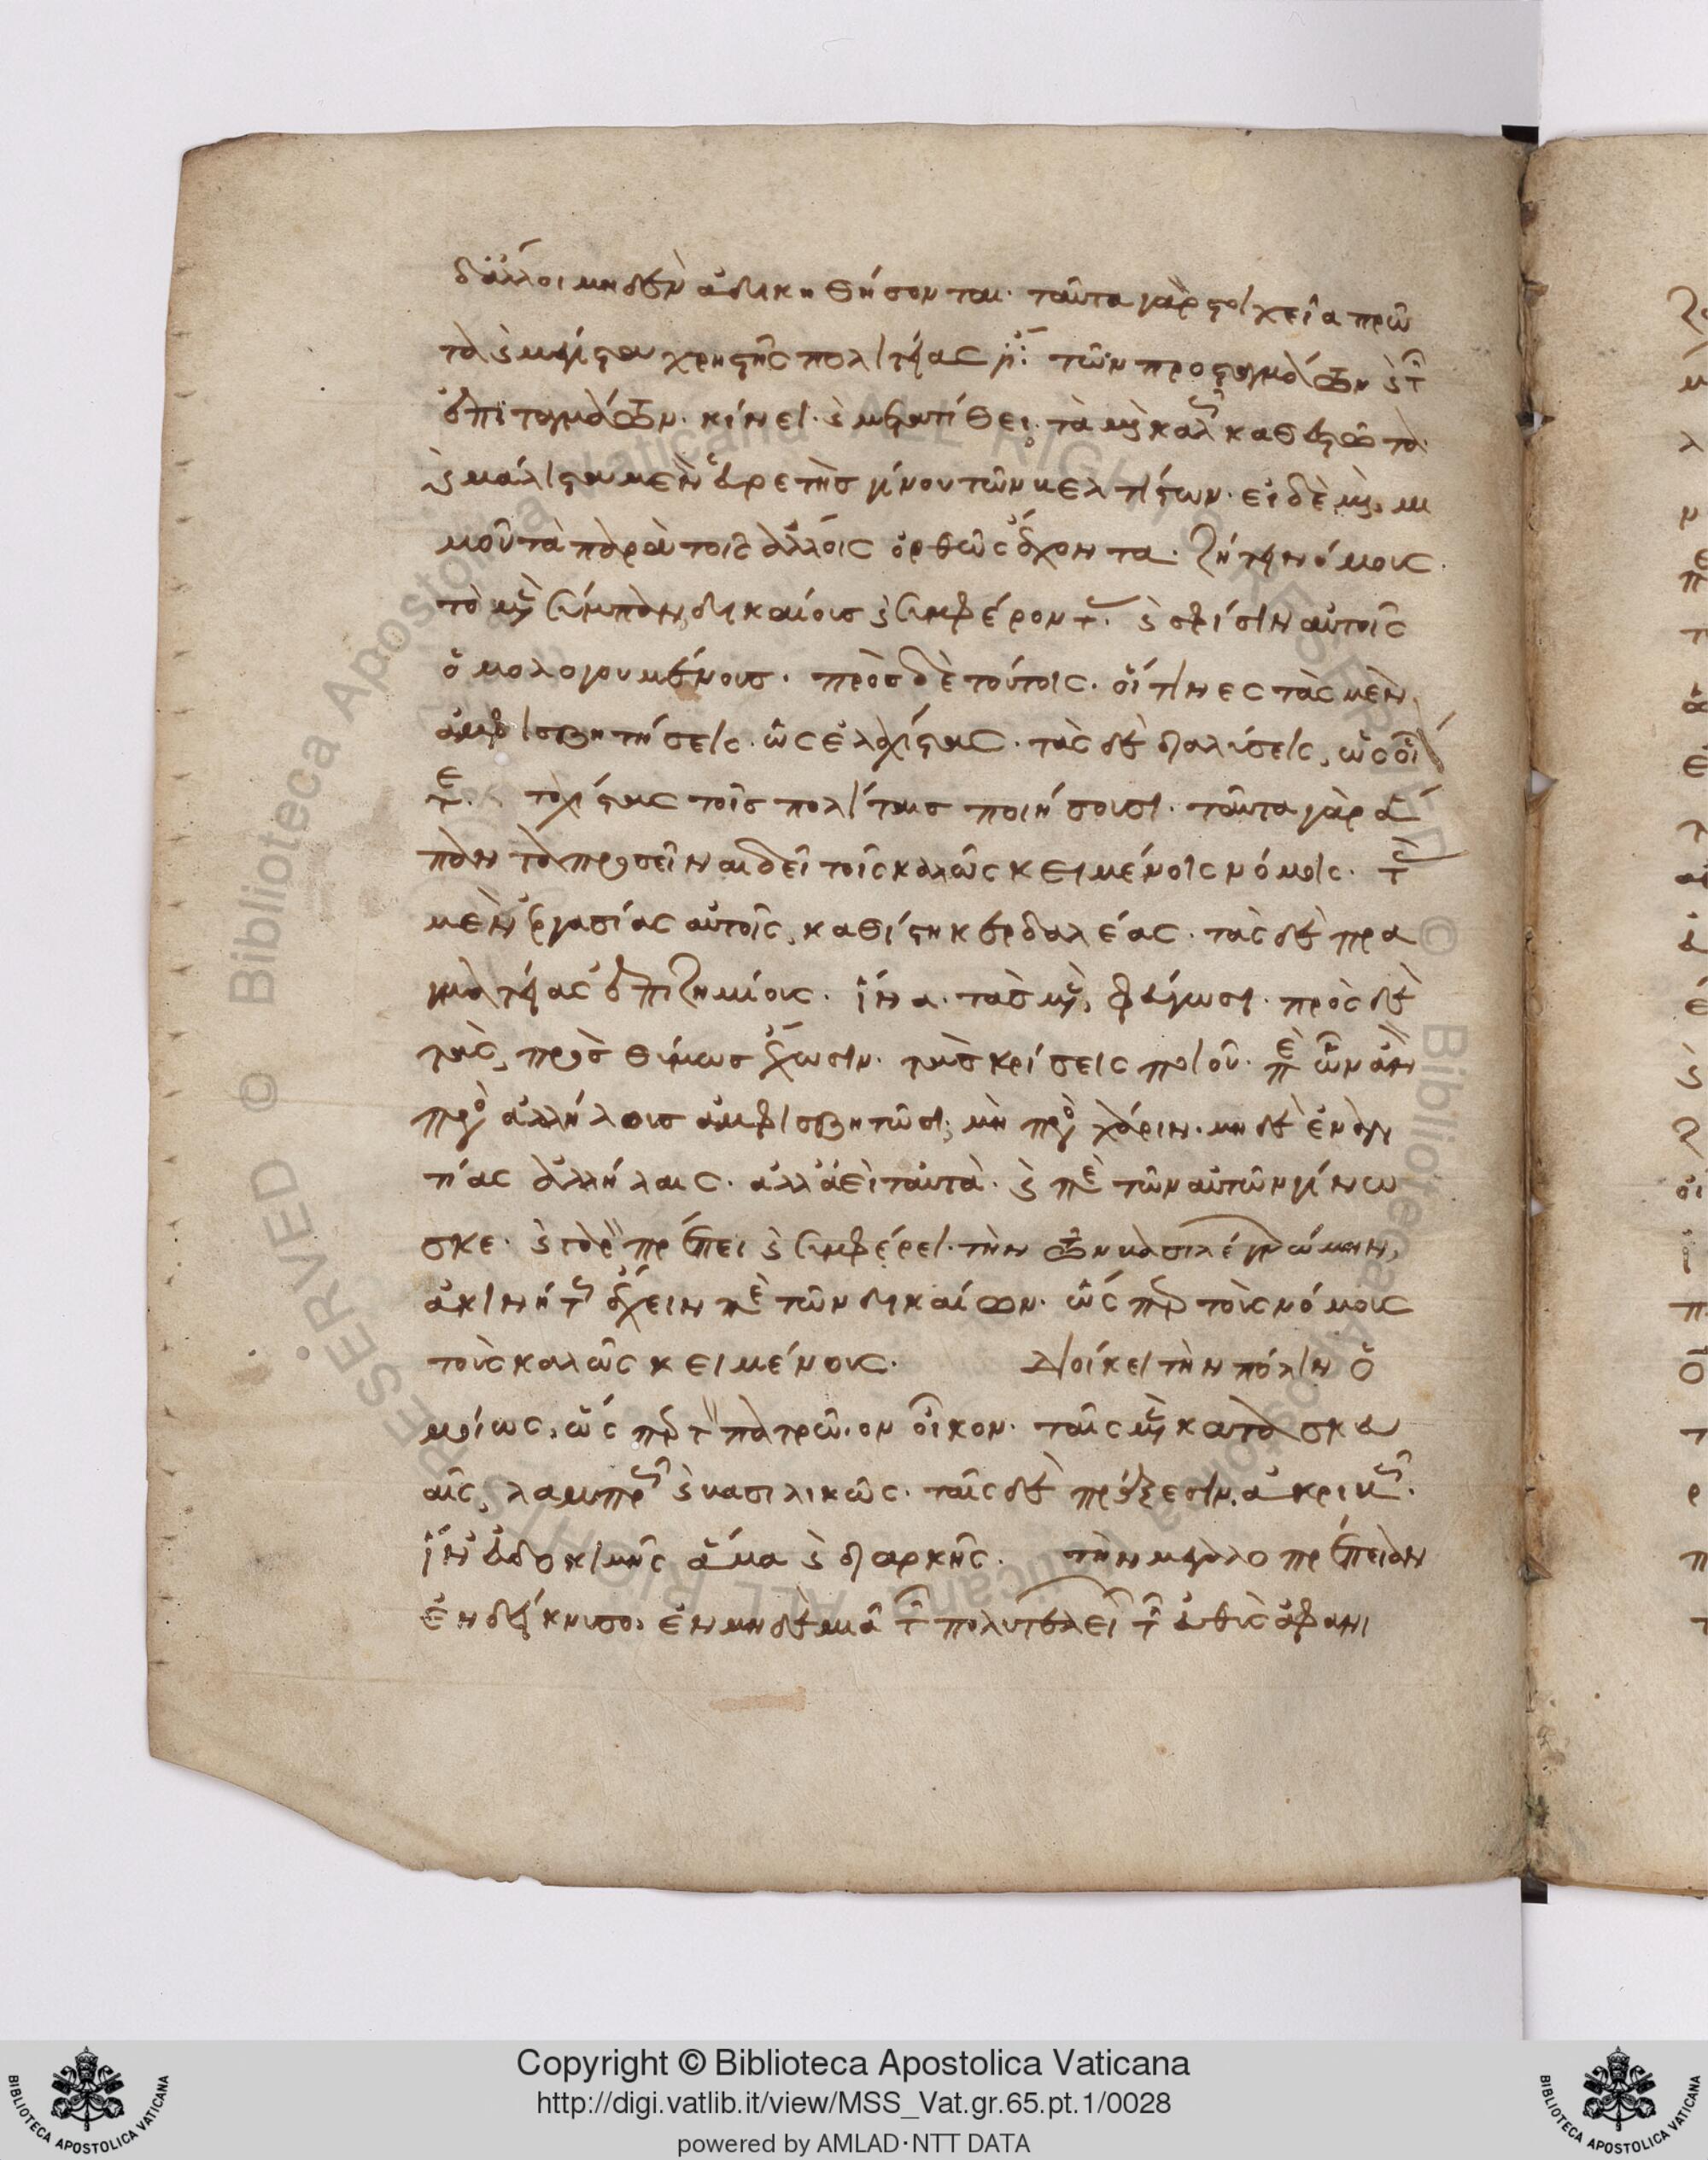 δ' ἄλλοι μηδὲν ἀδικηθήσονται· ταῦτα γὰρ στοιχεῖα πρῶ
τα καὶ μέγιστα χρηστῆς πολιτείας ἐστί· τῶν προσταγμάτων καὶ τῶν
ἐπιταγμάτων· κίνει καὶ μετατίθει τὰ μὴ καλῶς καθεστῶτα·
καὶ μάλιστα μὲν εὑρετὴς γίνου τῶν βελτίστων· εἰ δὲ μὴ, μι
μοῦ τὰ παρὰ τοῖς ἄλλοις ὀρθῶς ἔχοντα· ζήτει νόμους·
τὸ μὲν σύμπαν, δικαίους καὶ συμφέροντας· καὶ σφίσιν αὐτοῖς
ὁμολογουμένους· πρὸς δὲ τούτοις· οἵτινες τὰς μὲν
ἀμφισβητήσεις· ὡς ἐλαχίστας· τὰς δὲ διαλύσεις, ὡς οἷόν
τε· ταχίστας τοῖς πολίταις ποιήσουσι· ταῦτα γὰρ ἅ
παντα προσεῖναι δεῖ τοῖς καλῶς κειμένοις νόμοις· τὰς
μὲν ἐργασίας αὐτοῖς, καθίστη κερδαλέας· τὰς δὲ πρα
γματείας ἐπιζημίους· ἵνα· τὰς μὲν, φεύγωσι· πρὸς δὲ
τὰς, προθύμως ἔχωσιν· τὰς κρίσεις ποιοῦ· περὶ ὧν ἂν
πρὸς ἀλλήλους ἀμφισβητῶσι, μὴ πρὸς χάριν· μηδὲ ἐναν
τίας ἀλλήλαις· ἀλλ' ἀεὶ ταὐτὰ· καὶ περὶ τῶν αὐτῶν γίνω
σκε· καὶ γὰρ πρέπει καὶ συμφέρει· τὴν τῶν βασιλέων γνώμην,
ἀκινήτως ἔχειν περὶ τῶν δικαίων· ὥσπερ τοὺς νόμους
τοὺς καλῶς κειμένους· Διοίκει τὴν πόλιν ὁ
μοίως, ὥσπερ τὸν πατρῷον οἶκον· ταῖς μὲν κατασκευ
αῖς, λαμπρῶς καὶ βασιλικῶς· ταῖς δὲ πράξεσιν, ἀκριβῶς·
ἵν' εὐδοκιμῇς ἅμα καὶ διαρκῇς· τὴν μεγαλοπρέπειαν
ἐνδείκνυσο, ἐν μηδεμιᾷ τῶν πολυτελειῶν τῶν εὐθὺς ἀφανι
Copyright © Biblioteca Apostolica Vaticana
http://digi.vatlib.it/view/MSS_Vat.gr.65.pt.1/0028
powered by AMLAD·NTT DATA